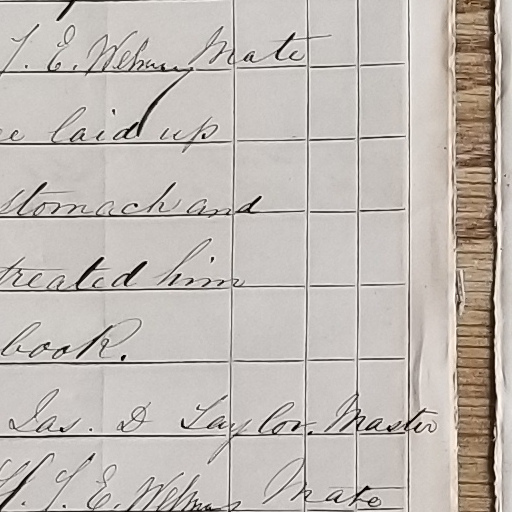 T. E. Mate
laid up
stomach and
treated him
book.
Jas. D Taylor. Master
T. E. Mate